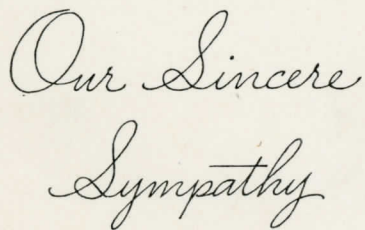 Our Sincere
Sympathy